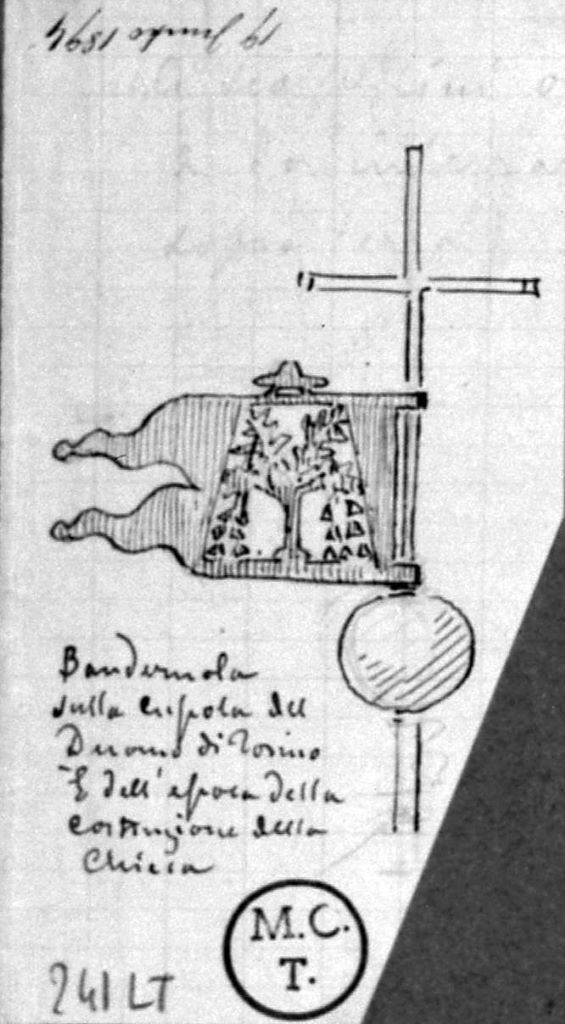 19 Giugno 1894
Banderuola
sulla cupola del
Duomo di Torino
È dell'epoca della
costruzione della
Chiesa
M.C.
T.
241 LT